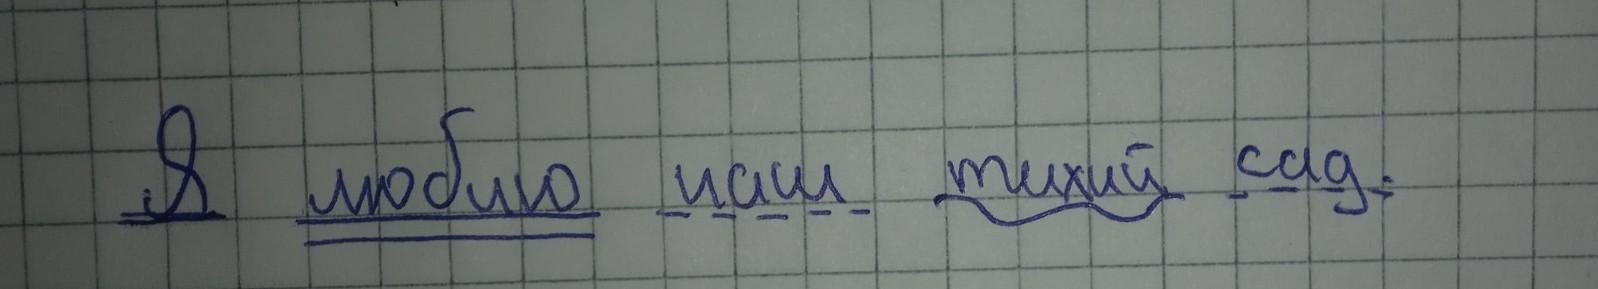 Я люблю наш тихий сад.